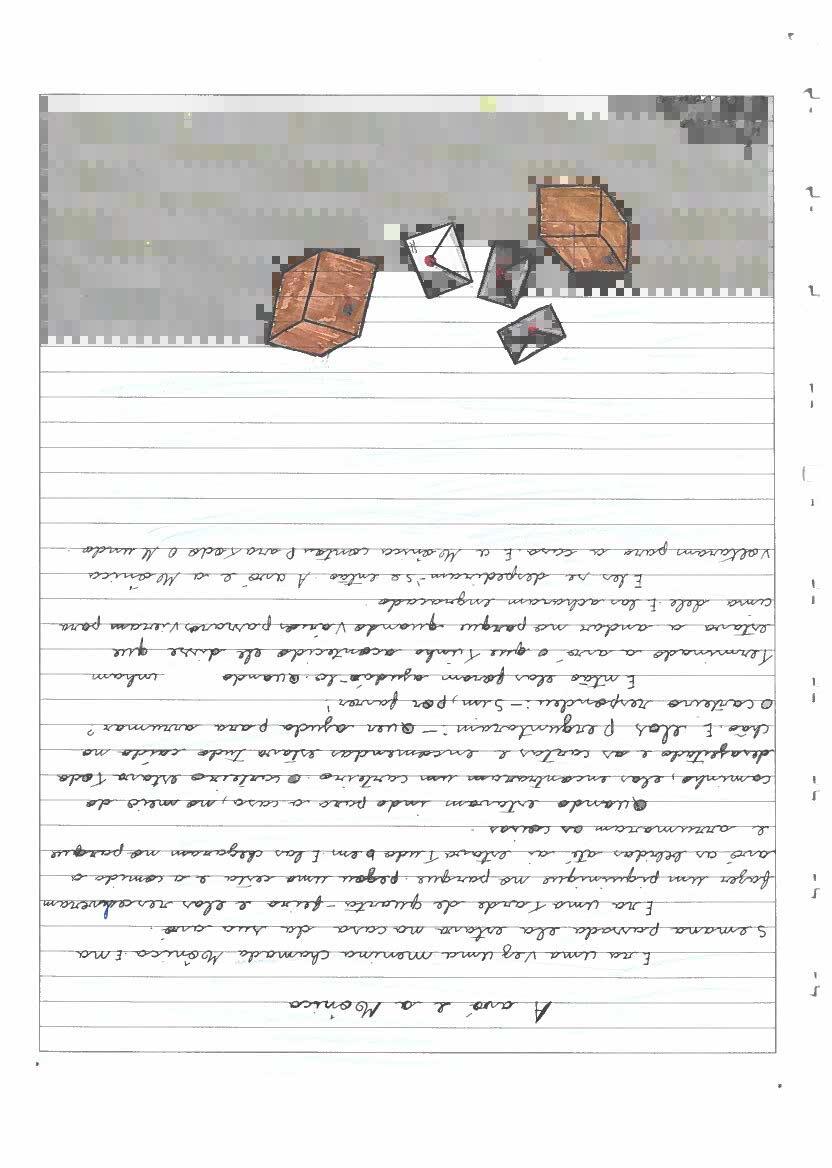 A avó e a Mónica
Era uma vez uma menina chamada Mónica E na
semana passada ela estava na casa da sua avó.
Era uma tarde de quarta-feira e elas resouveram
fazer um piquinique no parque pegou uma cesta e a comida a
avó as bebidas até ai estava Tudo bem Elas chegaram no parque
e arrumaram as coisas.
Quando estavam indo para a casa, no meio do
caminho, elas encontraram um carteiro o carteiro estava Todo
desajeitado e as cartas e encomendas estava Tudo caído no
chão E elas perguntaram: - Quer ajuda para arrumar?
O carteiro respondeu: - Sim, por favor!
Então elas foram ajudá-lo. Quando vinham
Terminado a avó o que Tinha acontecido ele disse que
estava a andar no parque quando vários parraros vieram para
cima dele E elas acharam engraçado.
Eles se despediram-se então A avó e a Mónica
voltaram para a casa E a Mónica contou Para Todo O Mundo.